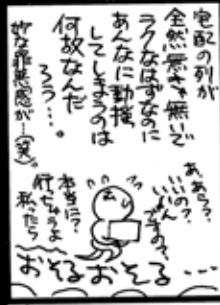 宅配の列が
全然無きゃ無いで
ラクなはずなのに
あんなに動揺
してしまうのは
何故なんだ
ろう…。
妙な罪悪感が…(笑)。
あ、あら?
いいの?
いいんですの?
本当に?
行っちゃうよ
私ったら
おそるおそる…